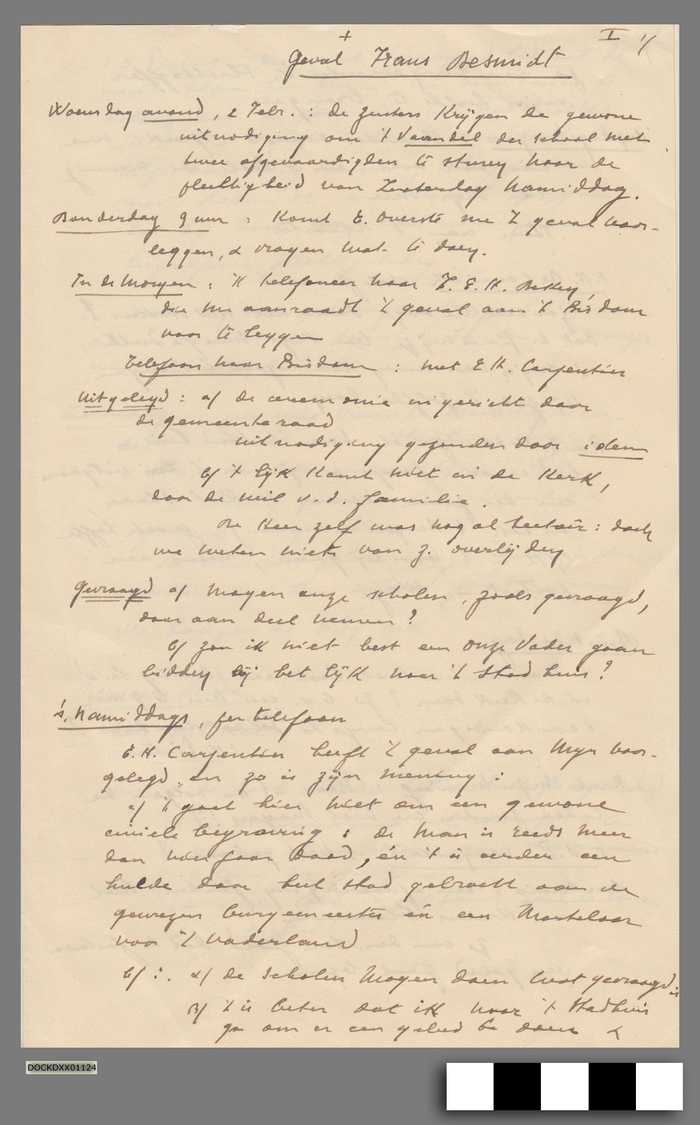 + I 1/
Geval Frans Desmidt
Woensdag avond, 2 Febr. : de zusters krijgen de gewone
uitnodiging om 't Vaandel der school met
twee afgevaardigden te sturen naar de
plechtigheid van Zaterdag namiddag.
Donderdag 9 uur : komt E. Overste me 't geval voor-
leggen, & vragen wat te doen.
In de morgen : 'k telefoneer naar Z. E. H.
die me aanraadt 't geval aan 't Bisdom
voor te leggen
Telefoon naar Bisdom : met E. H. Carpentier
Uitgelegd : a/ de ceremonie ingericht door
de gemeenteraad
uitnodiging gezonden door idem
b/ 't lijk komt niet in de kerk,
door de wil v. d. familie.
De Heer zelf was nogal sectair : doch
we weten niets van z. overlijden
Gevraagd a/ mogen onze scholen, zoals gevraagd,
daar aan deel nemen?
b/ zou ik niet best een Onze Vader gaan
bidden bij het lijk naar 't Stadhuis?
's namiddags, per telefoon
E. H. Carpentier heeft 't geval aan Mgr voor-
gelegd, en zo is zijn mening :
a/ 't gaat hier niet om een gewone
civiele begraving : de man is reeds meer
dan vier jaar dood, én 't is eerder een
hulde door heel stad gebracht aan de
gewezen burgemeester én een Martelaar
voor 't vaderland
b/ ∴ α/ de scholen mogen doen wat gevraagd is
β/ 't is beter dat ik naar 't Stadhuis
ga om er een gebed te doen &
DOCKDXX01124